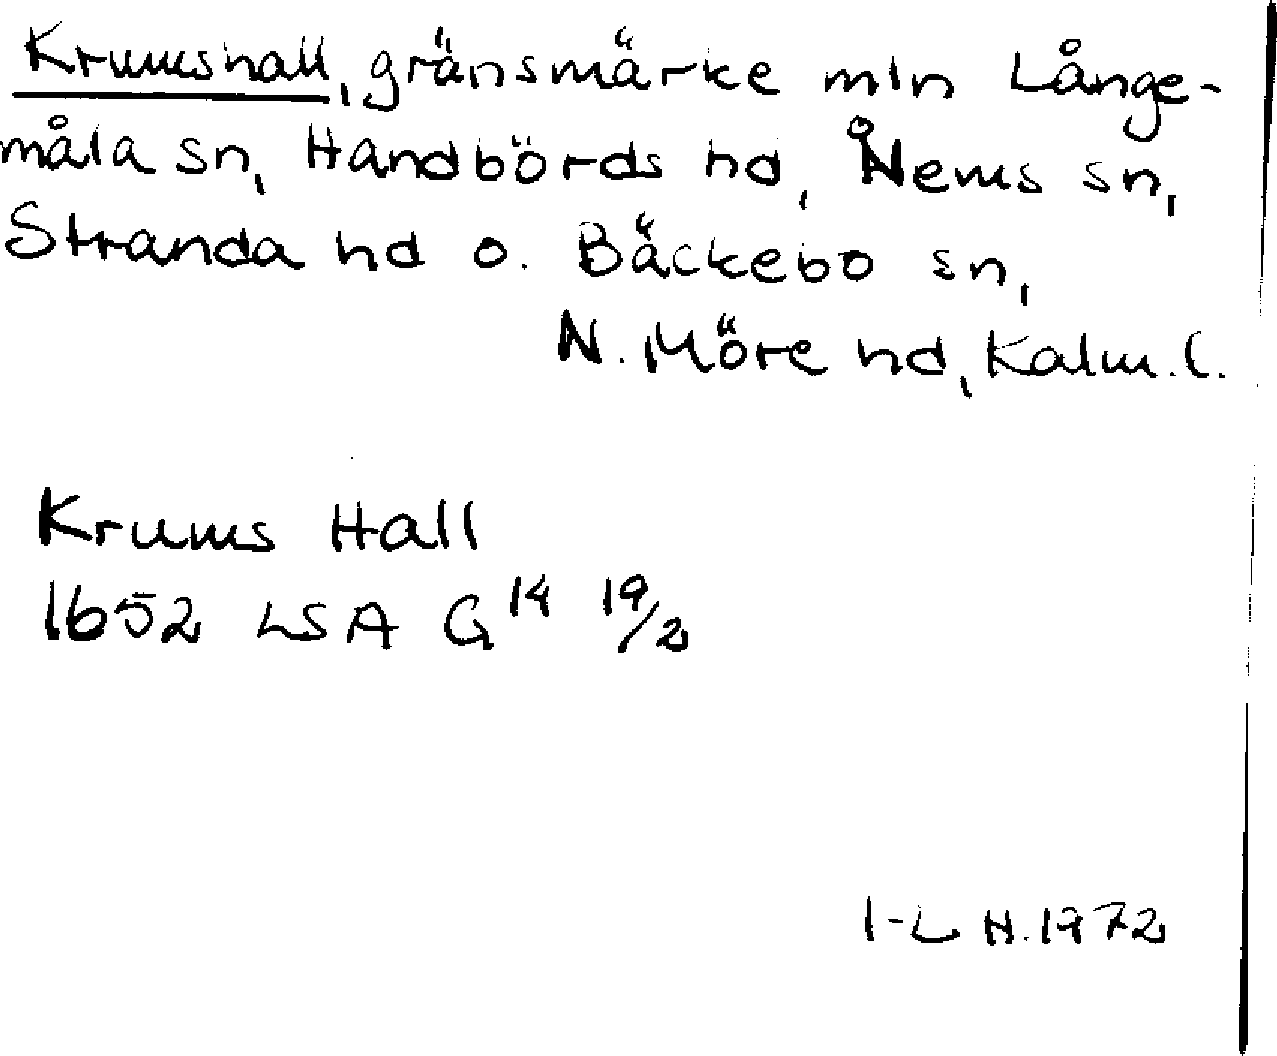 Krumshall, gränsmärke mln Långe-
måla sn, Handbörds hd, Ålems sn,
Stranda hd o. Bäckebo sn,
N. Möre hd, Kalm. l.
Krums Hall
1652 LSA G14 19/2
I-L H. 1972